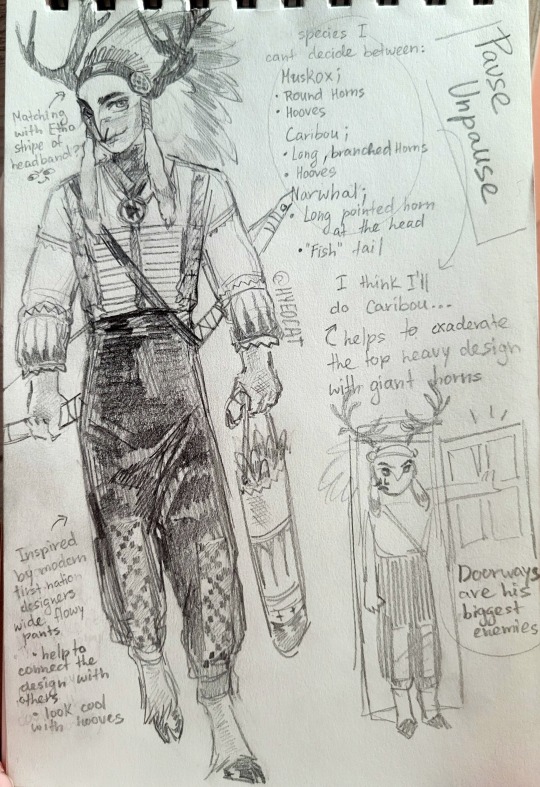 species I
cant decide between:
Muskox;
• Round Horns
• Hooves
Caribou;
• Long, branched Horns
• Hooves
Narwhal;
• Long pointed horn
at the head
• "Fish" tail
Pause
Unpause
Matching
with Etho
stripe of
headband?
I think I'll
do Caribou...
helps to exaderate
the top heavy design
with giant horns
@HYEOCAT
Inspired
by modern
first nation
designers
wide, flowy
pants
• help to
connect the
design with
others
• look cool
with hooves
Doorways
are his
biggest
enemies